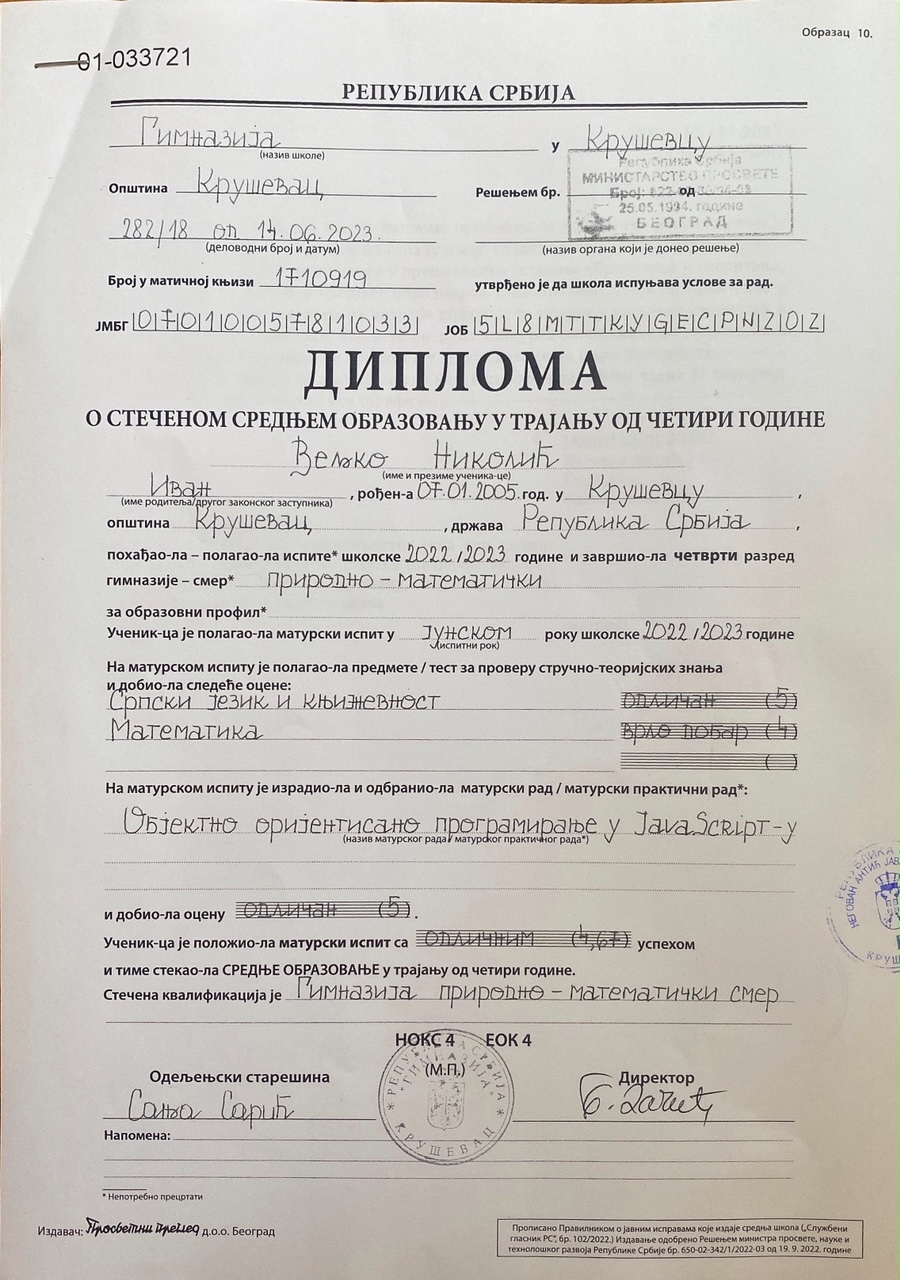 Образац 10.
01-033721
РЕПУБЛИКА СРБИЈА
Гимназија у Крушевцу
(назив школе)
Република Србија
МИНИСТАРСТВО ПРОСВЕТЕ
Општина Крушевац Решењем бр. од
Број:
25.05.1994. године
БЕОГРАД
282/18 од 14.06.2023.
(деловодни број и датум) (назив органа који је донео решење)
Број у матичној књизи 1710919 утврђено је да школа испуњава услове за рад.
ЈМБГ |0|7|0|1|0|0|5|7|8|1|0|3|3| ЈОБ |5|L|8|M|T|T|K|Y|G|E|C|P|N|Z|0|Z|
ДИПЛОМА
О СТЕЧЕНОМ СРЕДЊЕМ ОБРАЗОВАЊУ У ТРАЈАЊУ ОД ЧЕТИРИ ГОДИНЕ
Вељко Николић
(име и презиме ученика-це)
Иван, рођен-а 07.01.2005. год. у Крушевцу,
(име родитеља/другог законског заступника)
општина Крушевац, држава Република Србија,
похађао-ла – полагао-ла испите* школске 2022/2023 године и завршио-ла четврти разред
гимназије – смер* природно – математички
за образовни профил*
Ученик-ца је полагао-ла матурски испит у јунском року школске 2022/2023 године
(испитни рок)
На матурском испиту је полагао-ла предмете / тест за проверу стручно-теоријских знања
и добио-ла следеће оцене:
Српски језик и књижевност одличан (5)
Математика врло добар (4)
( )
На матурском испиту је израдио-ла и одбранио-ла матурски рад / матурски практични рад*:
Објектно оријентисано програмирање у JavaScript-у
(назив матурског рада / матурског практичног рада*)
и добио-ла оцену одличан (5).
Ученик-ца је положио-ла матурски испит са одличним (4,67) успехом
и тиме стекао-ла СРЕДЊЕ ОБРАЗОВАЊЕ у трајању од четири године.
Стечена квалификација је Гимназија природно – математички смер
НОКС 4 ЕОК 4
(М.П.)
РЕПУБЛИКА СРБИЈА
"ГИМНАЗИЈА"
КРУШЕВАЦ
Одељењски старешина Директор
Сања Сарић
Напомена:
* Непотребно прецртати
Издавач: Просветни преглед д.о.о. Београд
Прописано Правилником о јавним исправама које издаје средња школа („Службени
гласник РС“, бр. 102/2022.) Издавање одобрено Решењем министра просвете, науке и
технолошког развоја Републике Србије бр. 650-02-342/1/2022-03 од 19. 9. 2022. године